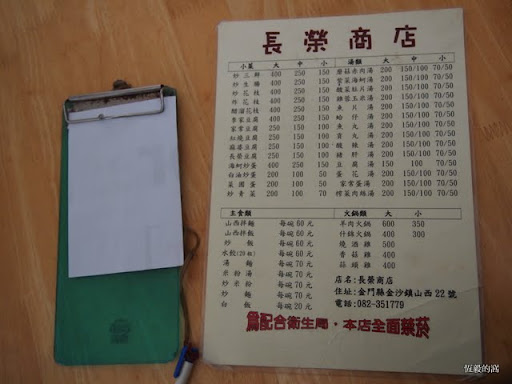 長榮商店
小菜 大 中 小 湯類 大 中 小
炒三鮮 400 250 150 蘑菇赤肉湯 200 150/100 70/50
炒生腸 400 250 150 紫菜海蚵湯 200 150/100 70/50
炒花枝 400 250 150 酸菜肚片湯 200 150/100 70/50
炸花枝 400 250 150 雞蓉玉米湯 200 150/100 70/50
醋溜花枝 400 250 150 魚片湯 200 150/100 70/50
李家豆腐 200 150 100 蛤仔湯 200 150/100 70/50
家常豆腐 200 150 100 魚丸湯 200 150/100 70/50
紅燒豆腐 200 150 100 貢丸湯 200 150/100 70/50
麻婆豆腐 200 150 100 酸辣湯 200 150/100 70/50
長榮豆腐 200 150 100 豬肝湯 200 150/100 70/50
海蚵炒蛋 200 150 100 豆腐湯 150 100 70/50
白油炒蛋 200 100 50 蛋花湯 200 150/100 70/50
菜圃蛋 200 100 50 家常蛋湯 200 150/100 70/50
炒青菜 200 100 70 榨菜肉絲湯 200 150/100 70/50
主食類 火鍋類 大 小
山西拌麵 每碗 60 元 羊肉火鍋 600 350
山西炸麵 每碗 60 元 什錦火鍋 400 300
炒飯 每碗 60 元 燒酒雞 500
水餃(20粒) 每碗 60 元 香菇雞 400
湯麵 每碗 70 元 蒜頭雞 400
米粉湯 每碗 70 元
炒米粉 每碗 70 元 店名:長榮商店
炒麵 每碗 70 元 住址:金門縣金沙鎮山西 22 號
白飯 每碗 20 元 電話:082-351779
為配合衛生局・本店全面禁菸
恆毅的窩